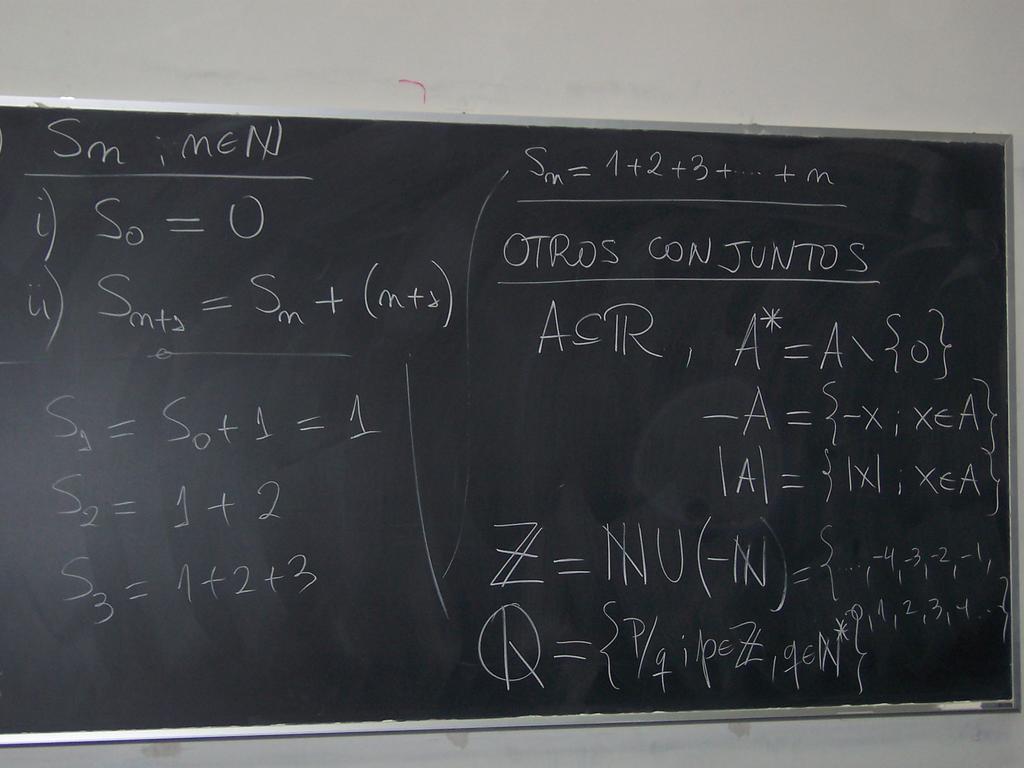 ) Sₙ ; n∈ℕ
i) S₀ = 0
ii) Sₙ₊₁ = Sₙ + (n+1)
S₁ = S₀ + 1 = 1
S₂ = 1 + 2
S₃ = 1+2+3
Sₙ = 1+2+3+....+n
OTROS CONJUNTOS
A⊆ℝ, A* = A∖{0}
-A = {-x ; x∈A}
|A| = {|x| ; x∈A}
ℤ = ℕ∪(-ℕ) = {...., -4, -3, -2, -1,
0, 1, 2, 3, 4 ...}
ℚ = {p/q ; p∈ℤ, q∈ℕ*}